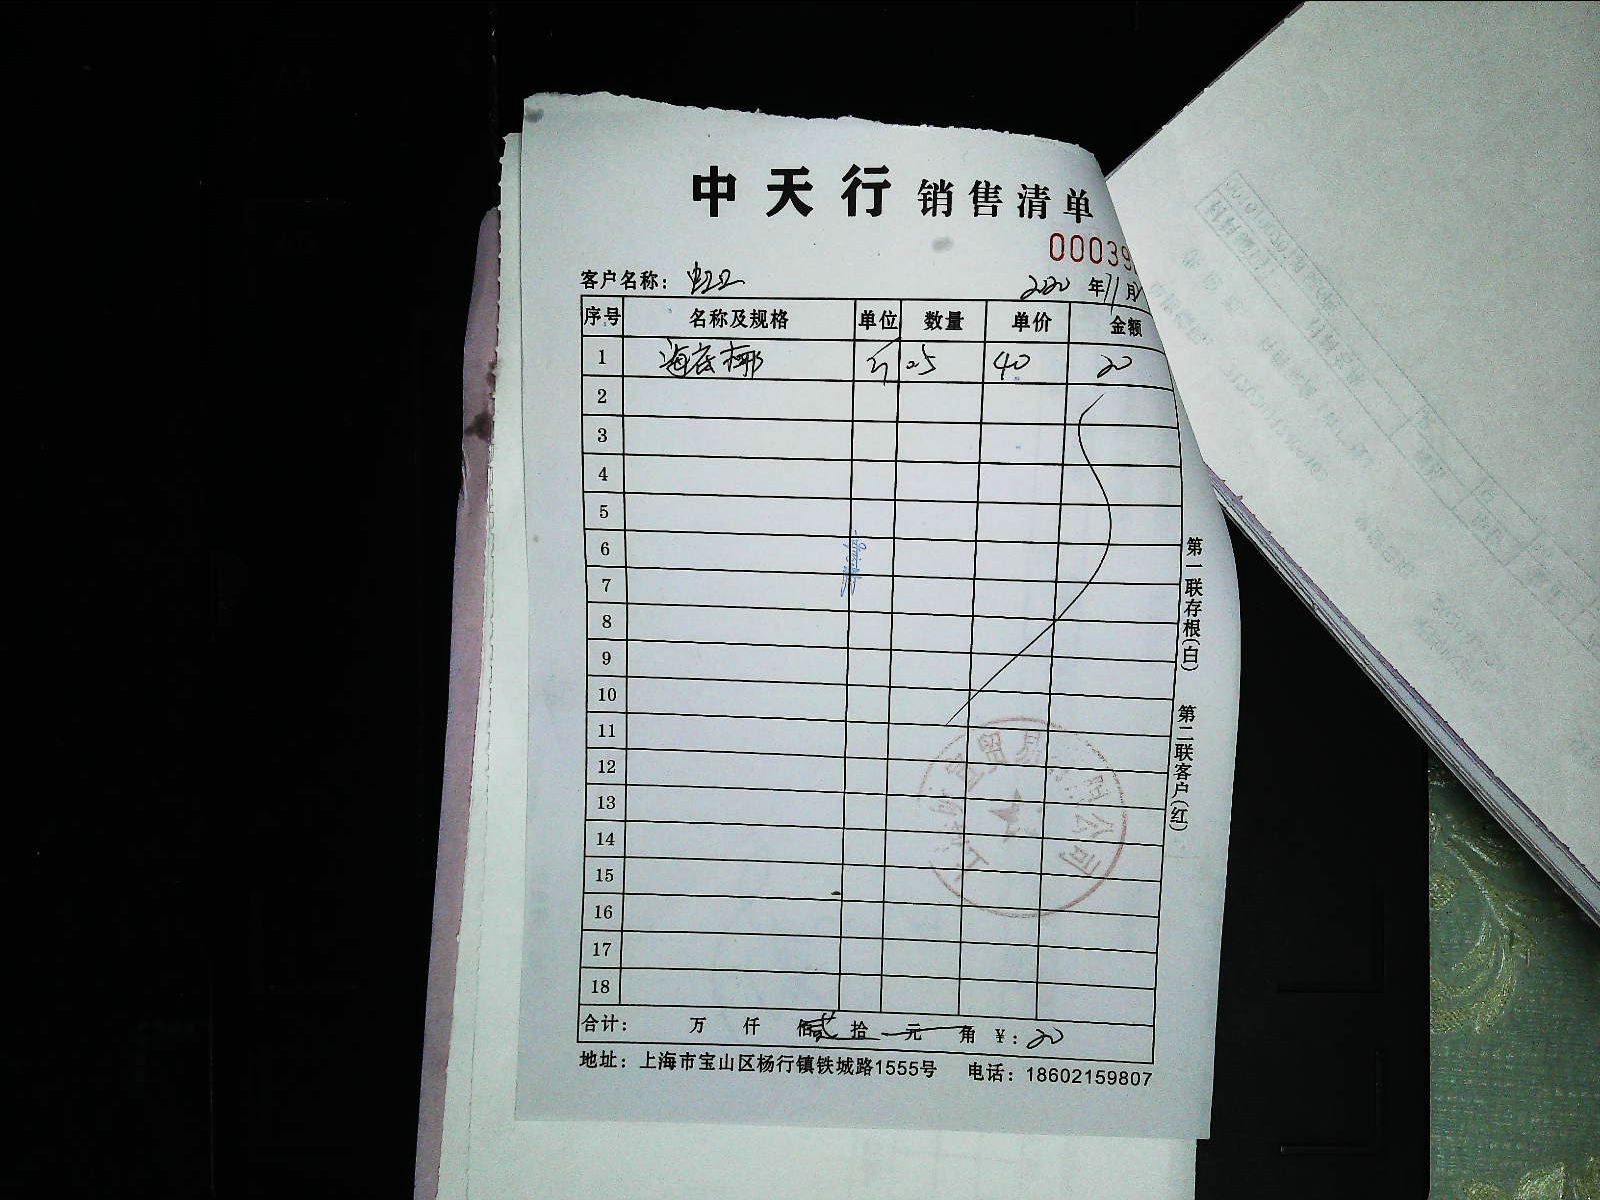 中天行 销售清单
00039
客户名称: 虹江 2020 年 11 月
序号 名称及规格 单位 数量 单价 金额
1 海底椰 斤 0.5 40 20
2
3
4
5
6
7
8
9
10
11
12
13
14
15
16
17
18
合计: 万 仟 佰 贰 拾 元 角 ¥: 20
地址: 上海市宝山区杨行镇铁城路1555号 电话: 18602159807
第一联存根(白) 第二联客户(红)
贸易有限公司